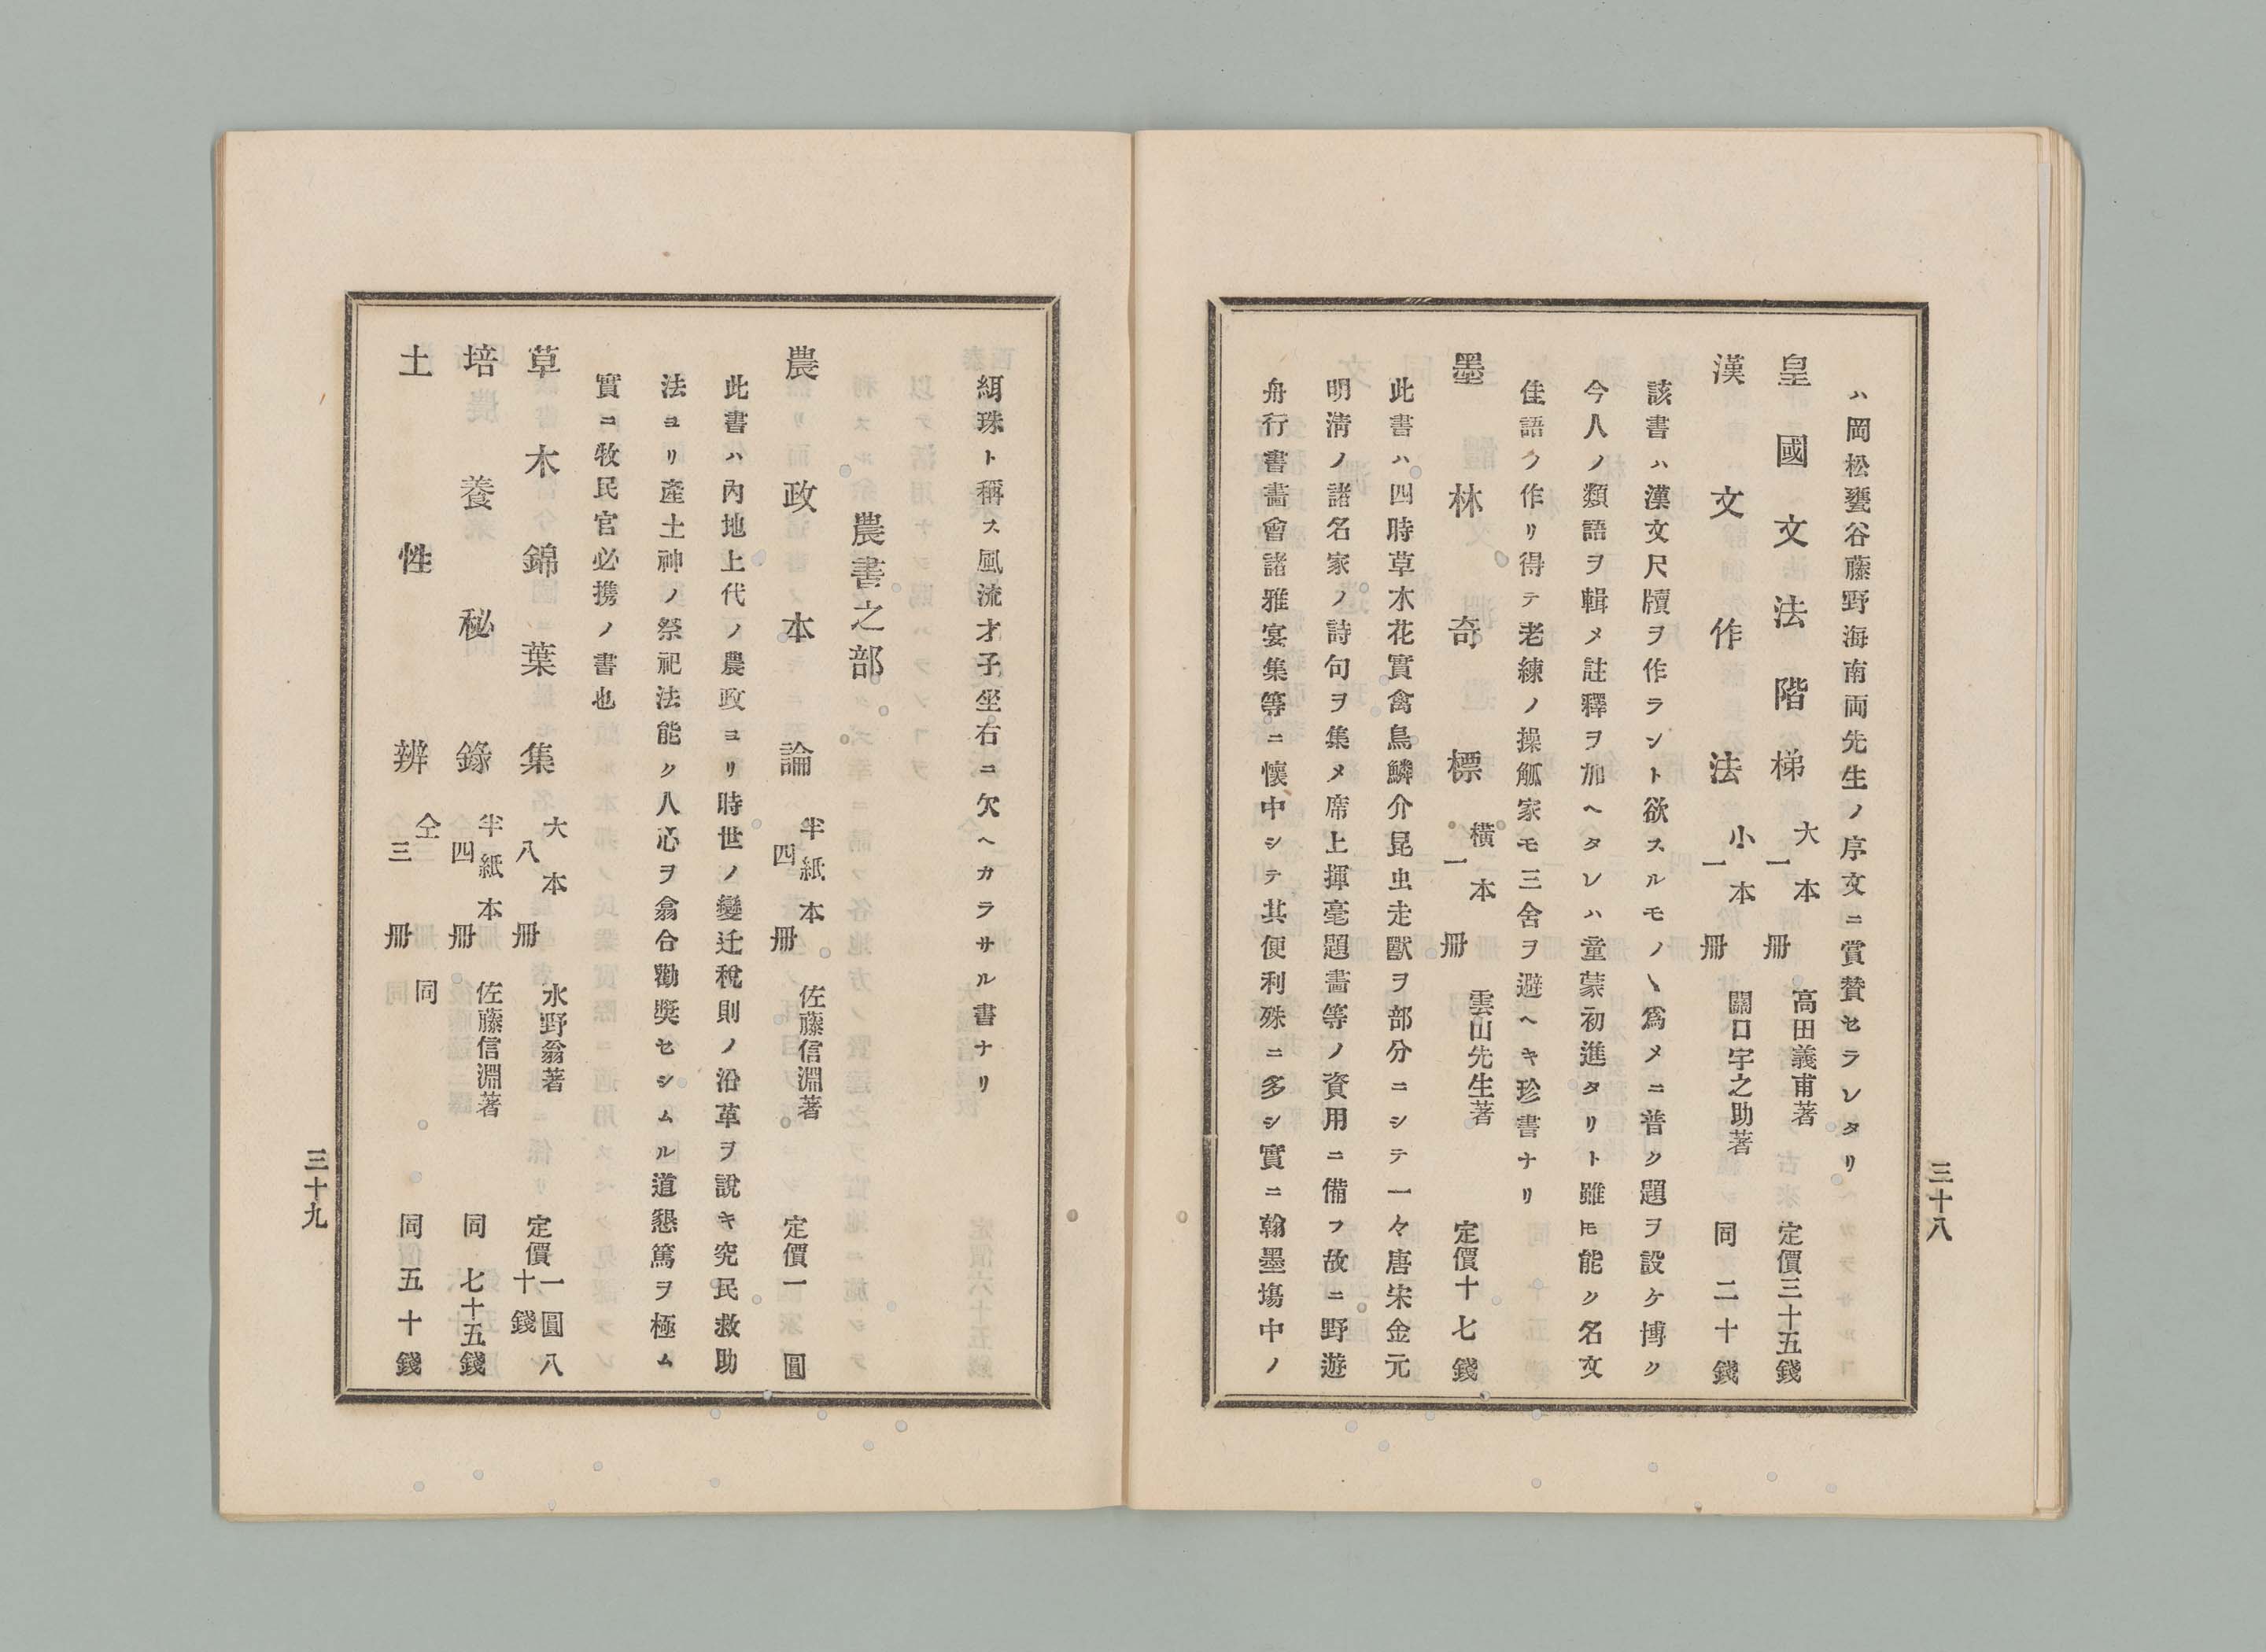 ハ岡松甕谷藤野海南両先生ノ序文ニ賞賛セラレタリ
皇國文法階梯 大本一冊 高田義甫著 定價三十五錢
漢文作法 小本一冊 關口宇之助著 同二十錢
該書ハ漢文尺牘ヲ作ラント欲スルモノヽ爲メニ普ク題ヲ設ケ博ク
今人ノ類語ヲ輯メ註釋ヲ加ヘタレハ童蒙初進タリト雖𪜈能ク名文
佳語ノ作リ得テ老練ノ操觚家モ三舍ヲ避ヘキ珍書ナリ
墨林奇標 橫本一冊 雲山先生著 定價十七錢
此書ハ四時草木花實禽鳥鱗介昆虫走獸ヲ部分ニシテ一々唐宋金元
明淸ノ諸名家ノ詩句ヲ集メ席上揮毫題畵等ノ資用ニ備フ故ニ野遊
舟行書畵會諸雅宴集等ニ懷中シテ其便利殊ニ多シ實ニ翰墨塲中ノ
三十八
絹珠ト稱ス風流才子坐右ニ欠ヘカラサル書ナリ
農書之部
農政本論 半紙本四冊 佐藤信淵著 定價一圓
此書ハ內地上代ノ農政ヨリ時世ノ變迁稅則ノ沿革ヲ說キ究民救助
法ヨリ產土神ノ祭祀法能ク人心ヲ翕合勸奬セシムル道懇篤ヲ極ム
實ニ牧民官必携ノ書也
草木錦葉集 大本八冊 水野翁著 定價一圓八十錢
培養秘錄 半紙本四冊 佐藤信淵著 同七十五錢
土性辨 仝三冊 同 同五十錢
三十九